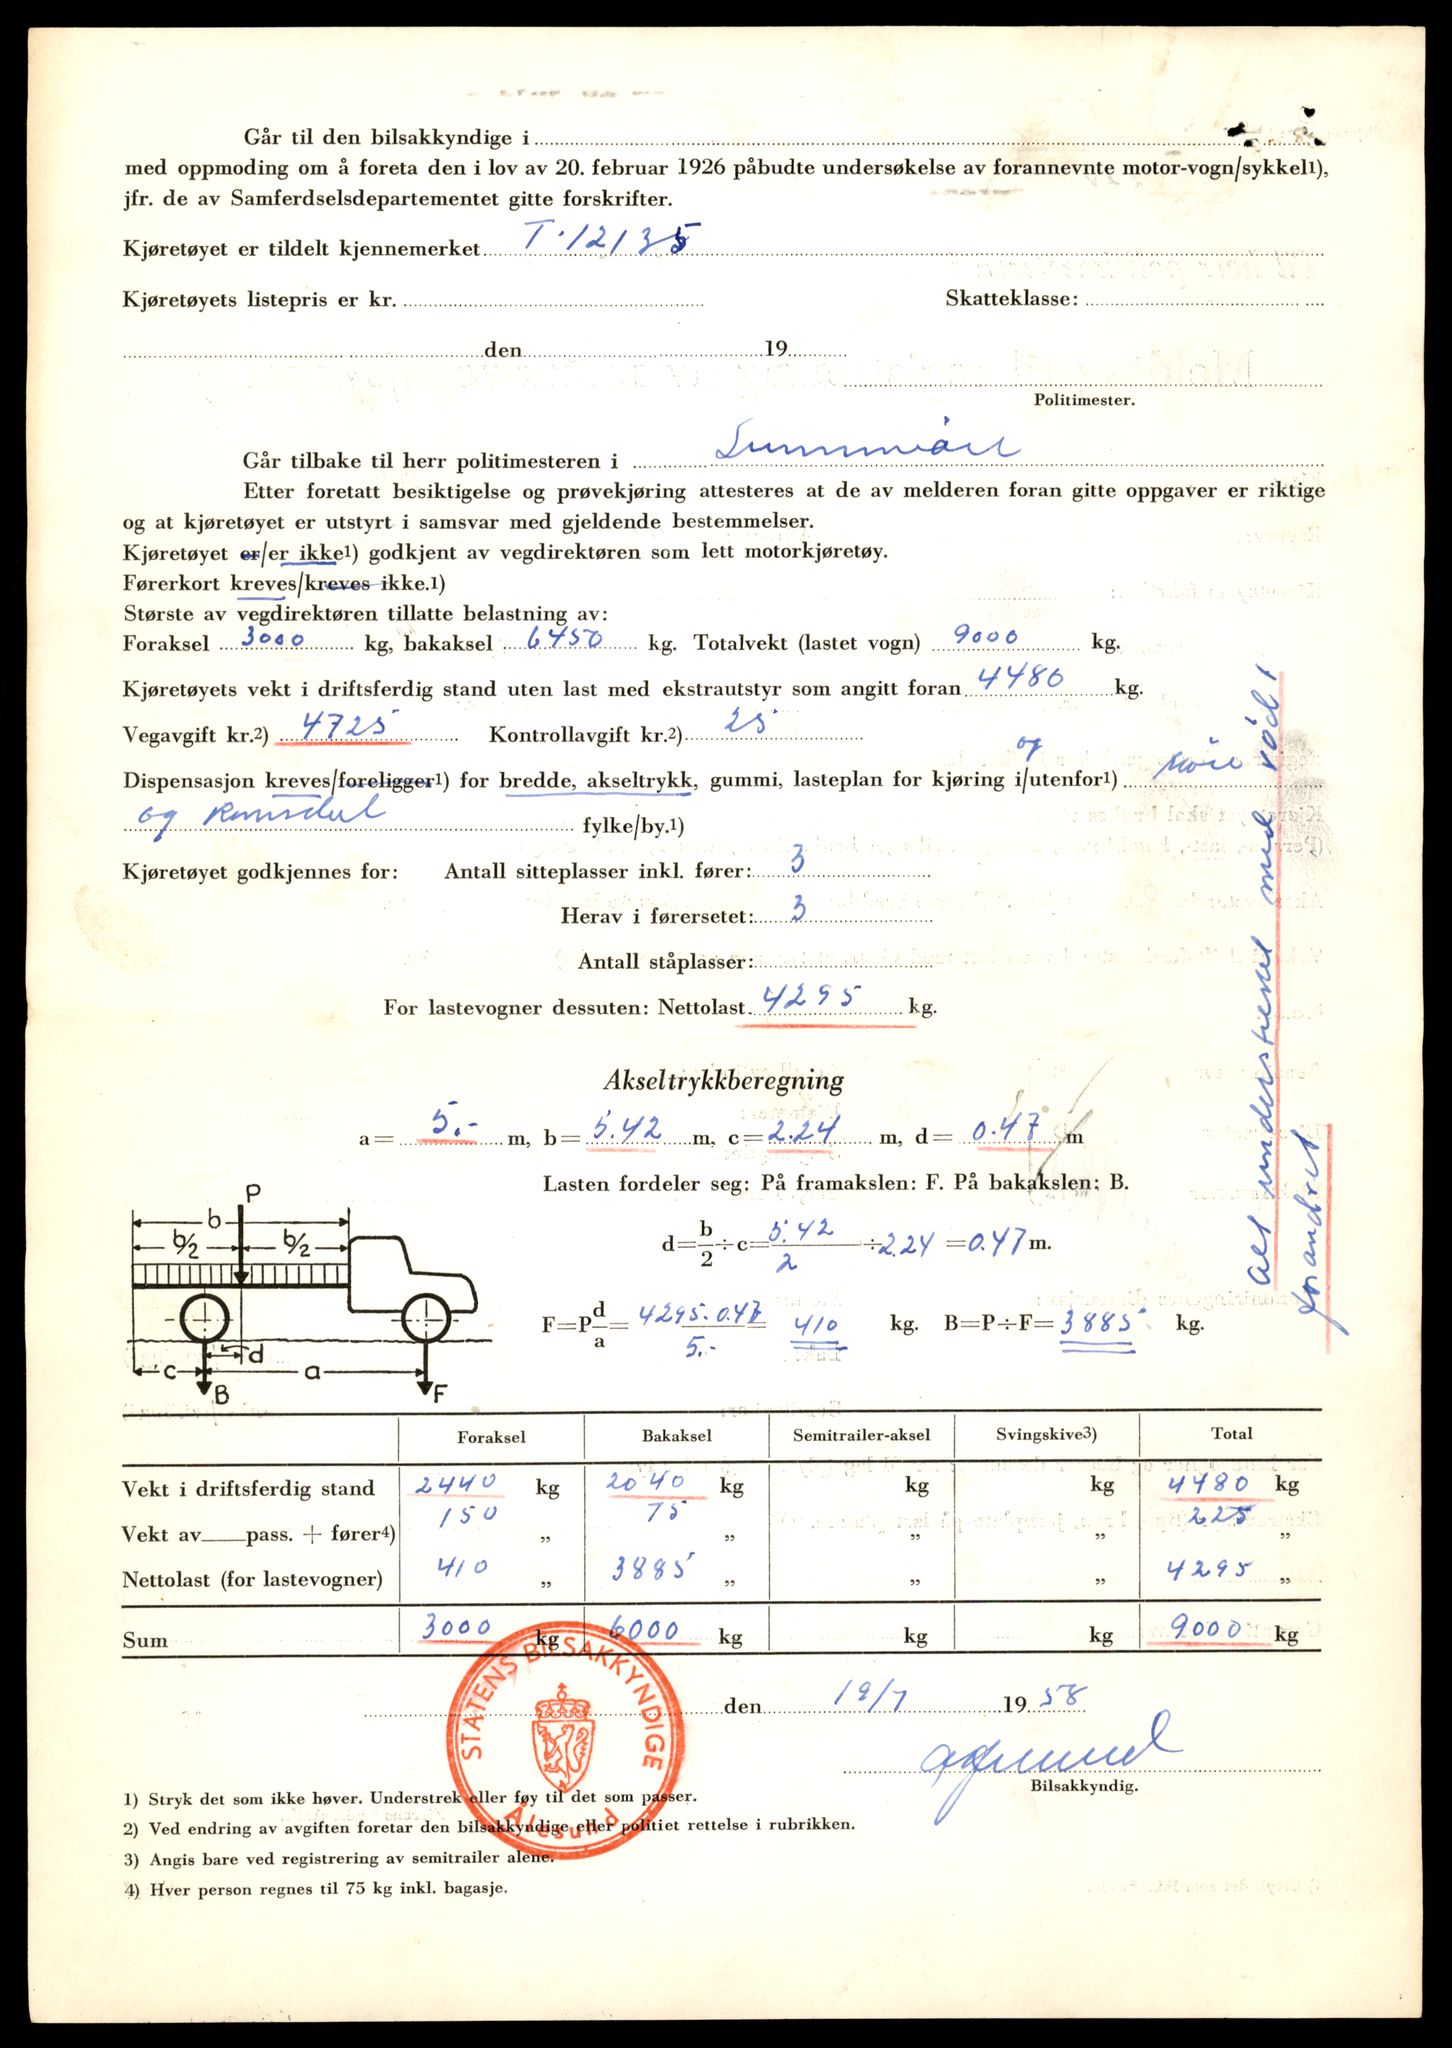 Går til den bilsakkyndige i
med oppmoding om å foreta den i lov av 20. februar 1926 påbudte undersøkelse av forannevnte motor-vogn/sykkel1),
jfr. de av Samferdselsdepartementet gitte forskrifter.
Kjøretøyet er tildelt kjennemerket T.12135
Kjøretøyets listepris er kr. Skatteklasse:
den 19
Politimester.
Går tilbake til herr politimesteren i Sunnmöre
Etter foretatt besiktigelse og prøvekjøring attesteres at de av melderen foran gitte oppgaver er riktige
og at kjøretøyet er utstyrt i samsvar med gjeldende bestemmelser.
Kjøretøyet er/er ikke1) godkjent av vegdirektøren som lett motorkjøretøy.
Førerkort kreves/kreves ikke.1)
Største av vegdirektøren tillatte belastning av:
Foraksel 3000 kg, bakaksel 6450 kg. Totalvekt (lastet vogn) 9000 kg.
Kjøretøyets vekt i driftsferdig stand uten last med ekstrautstyr som angitt foran 4480 kg.
Vegavgift kr.2) 4725 Kontrollavgift kr.2) 25
og
Dispensasjon kreves/foreligger1) for bredde, akseltrykk, gummi, lasteplan for kjøring i/utenfor1) Möre
og Romsdal fylke/by.1)
Kjøretøyet godkjennes for: Antall sitteplasser inkl. fører: 3
Herav i førersetet: 3
Antall ståplasser:
For lastevogner dessuten: Nettolast 4295 kg.
Alt understreket med rød
forandret
Akseltrykkberegning
a= 5.- m, b= 5.42 m, c= 2.24 m, d= 0.47 m
Lasten fordeler seg: På framakslen: F. På bakakslen: B.
d=b/2÷c= 5.42/2 ÷ 2.24 =0.47 m.
F=P d/a= 4295.0.47/5.- = 410 kg. B=P÷F= 3885 kg.
P
b
b/2 b/2
c d a
B F
Foraksel Bakaksel Semitrailer-aksel Svingskive3) Total
Vekt i driftsferdig stand 2440 kg 2040 kg kg kg 4480 kg
Vekt av pass. + fører4) 150 „ 75 „ „ „ 225 „
Nettolast (for lastevogner) 410 „ 3885 „ „ „ 4295 „
Sum 3000 kg 6000 kg kg kg 9000 kg
den 19/7 1958
STATENS BILSAKKYNDIGE
Ålesund
Bilsakkyndig.
1) Stryk det som ikke høver. Understrek eller føy til det som passer.
2) Ved endring av avgiften foretar den bilsakkyndige eller politiet rettelse i rubrikken.
3) Angis bare ved registrering av semitrailer alene.
4) Hver person regnes til 75 kg inkl. bagasje.